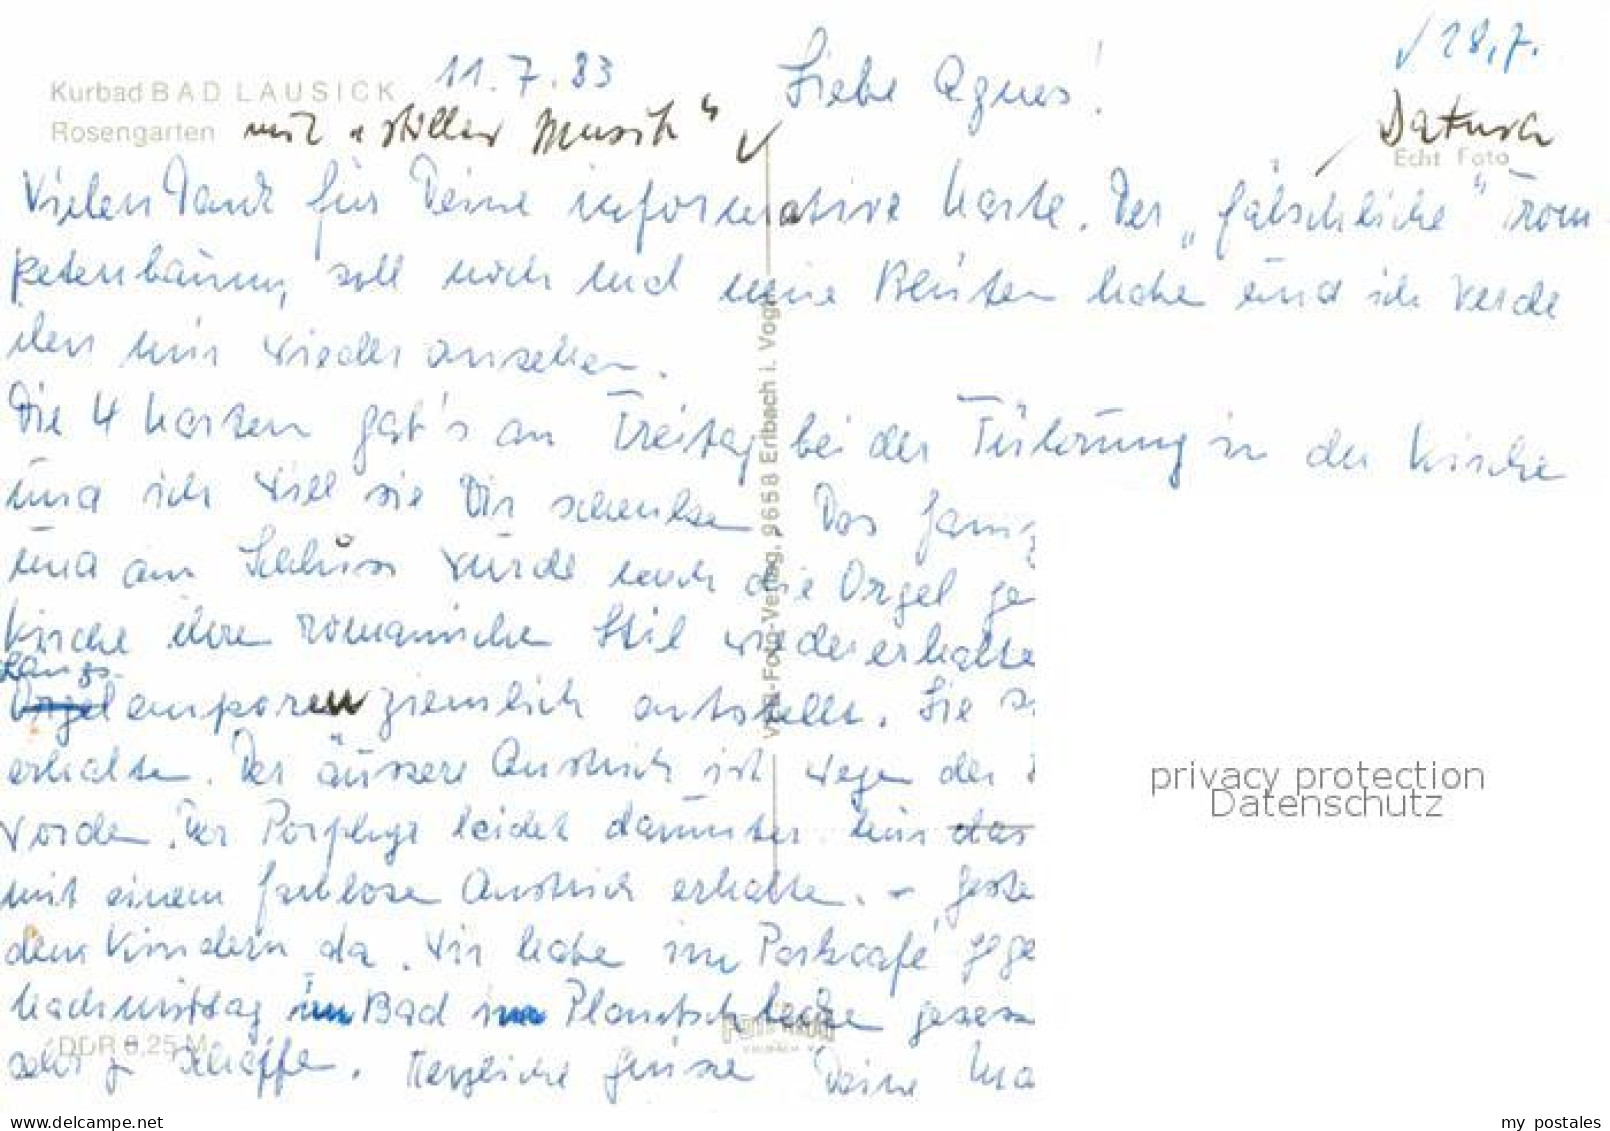 Kurbad BAD LAUSICK 11.7.83 Liebe Agnes! √ 28.7.
Rosengarten mit "stiller Musik" √ Datura
Echt Foto
Vielen Dank für Deine informative Karte. Der „fälschliche" Trom
petenbaum, soll noch und seine Blüten habe und ich werde
ihn mir wieder ansehen.
Die 4 Karten gab's am Freitag bei der Führung in der Kirche
und ich will sie Dir schenken Das ganz
und am Schluss wurde noch die Orgel ge
Kirche ihre romanische Stil wiedererhalte
Längs-
Orgelemporen ziemlich entstellt. Sie s
erhalten. Der äussere Anstrich ist wegen der
worden. Der Porphyr leidet darunter nur das
mit einem farblose Anstrich erhalte. - Geste
den Kindern da. Wir habe im Parkcafé gege
Nachmittag im Bad im Planschbecken gesess
DDR 0,25 M
sehr zu schaffen. Herzliche Grüsse Deine Ma
Verl.-Foto-Verlag, 9658 Erlbach i. Vogtl.
privacy protection
Datenschutz
https://www.delcampe.net
my_postales